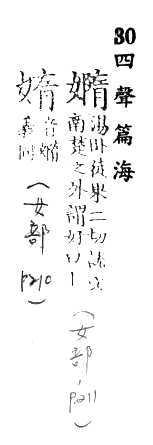 30四聲篇海
嫷
湯卧徒果二切
南楚之外謂好曰丨
(女部,P.211)
媠
音嫷
義同
(女部P.210)